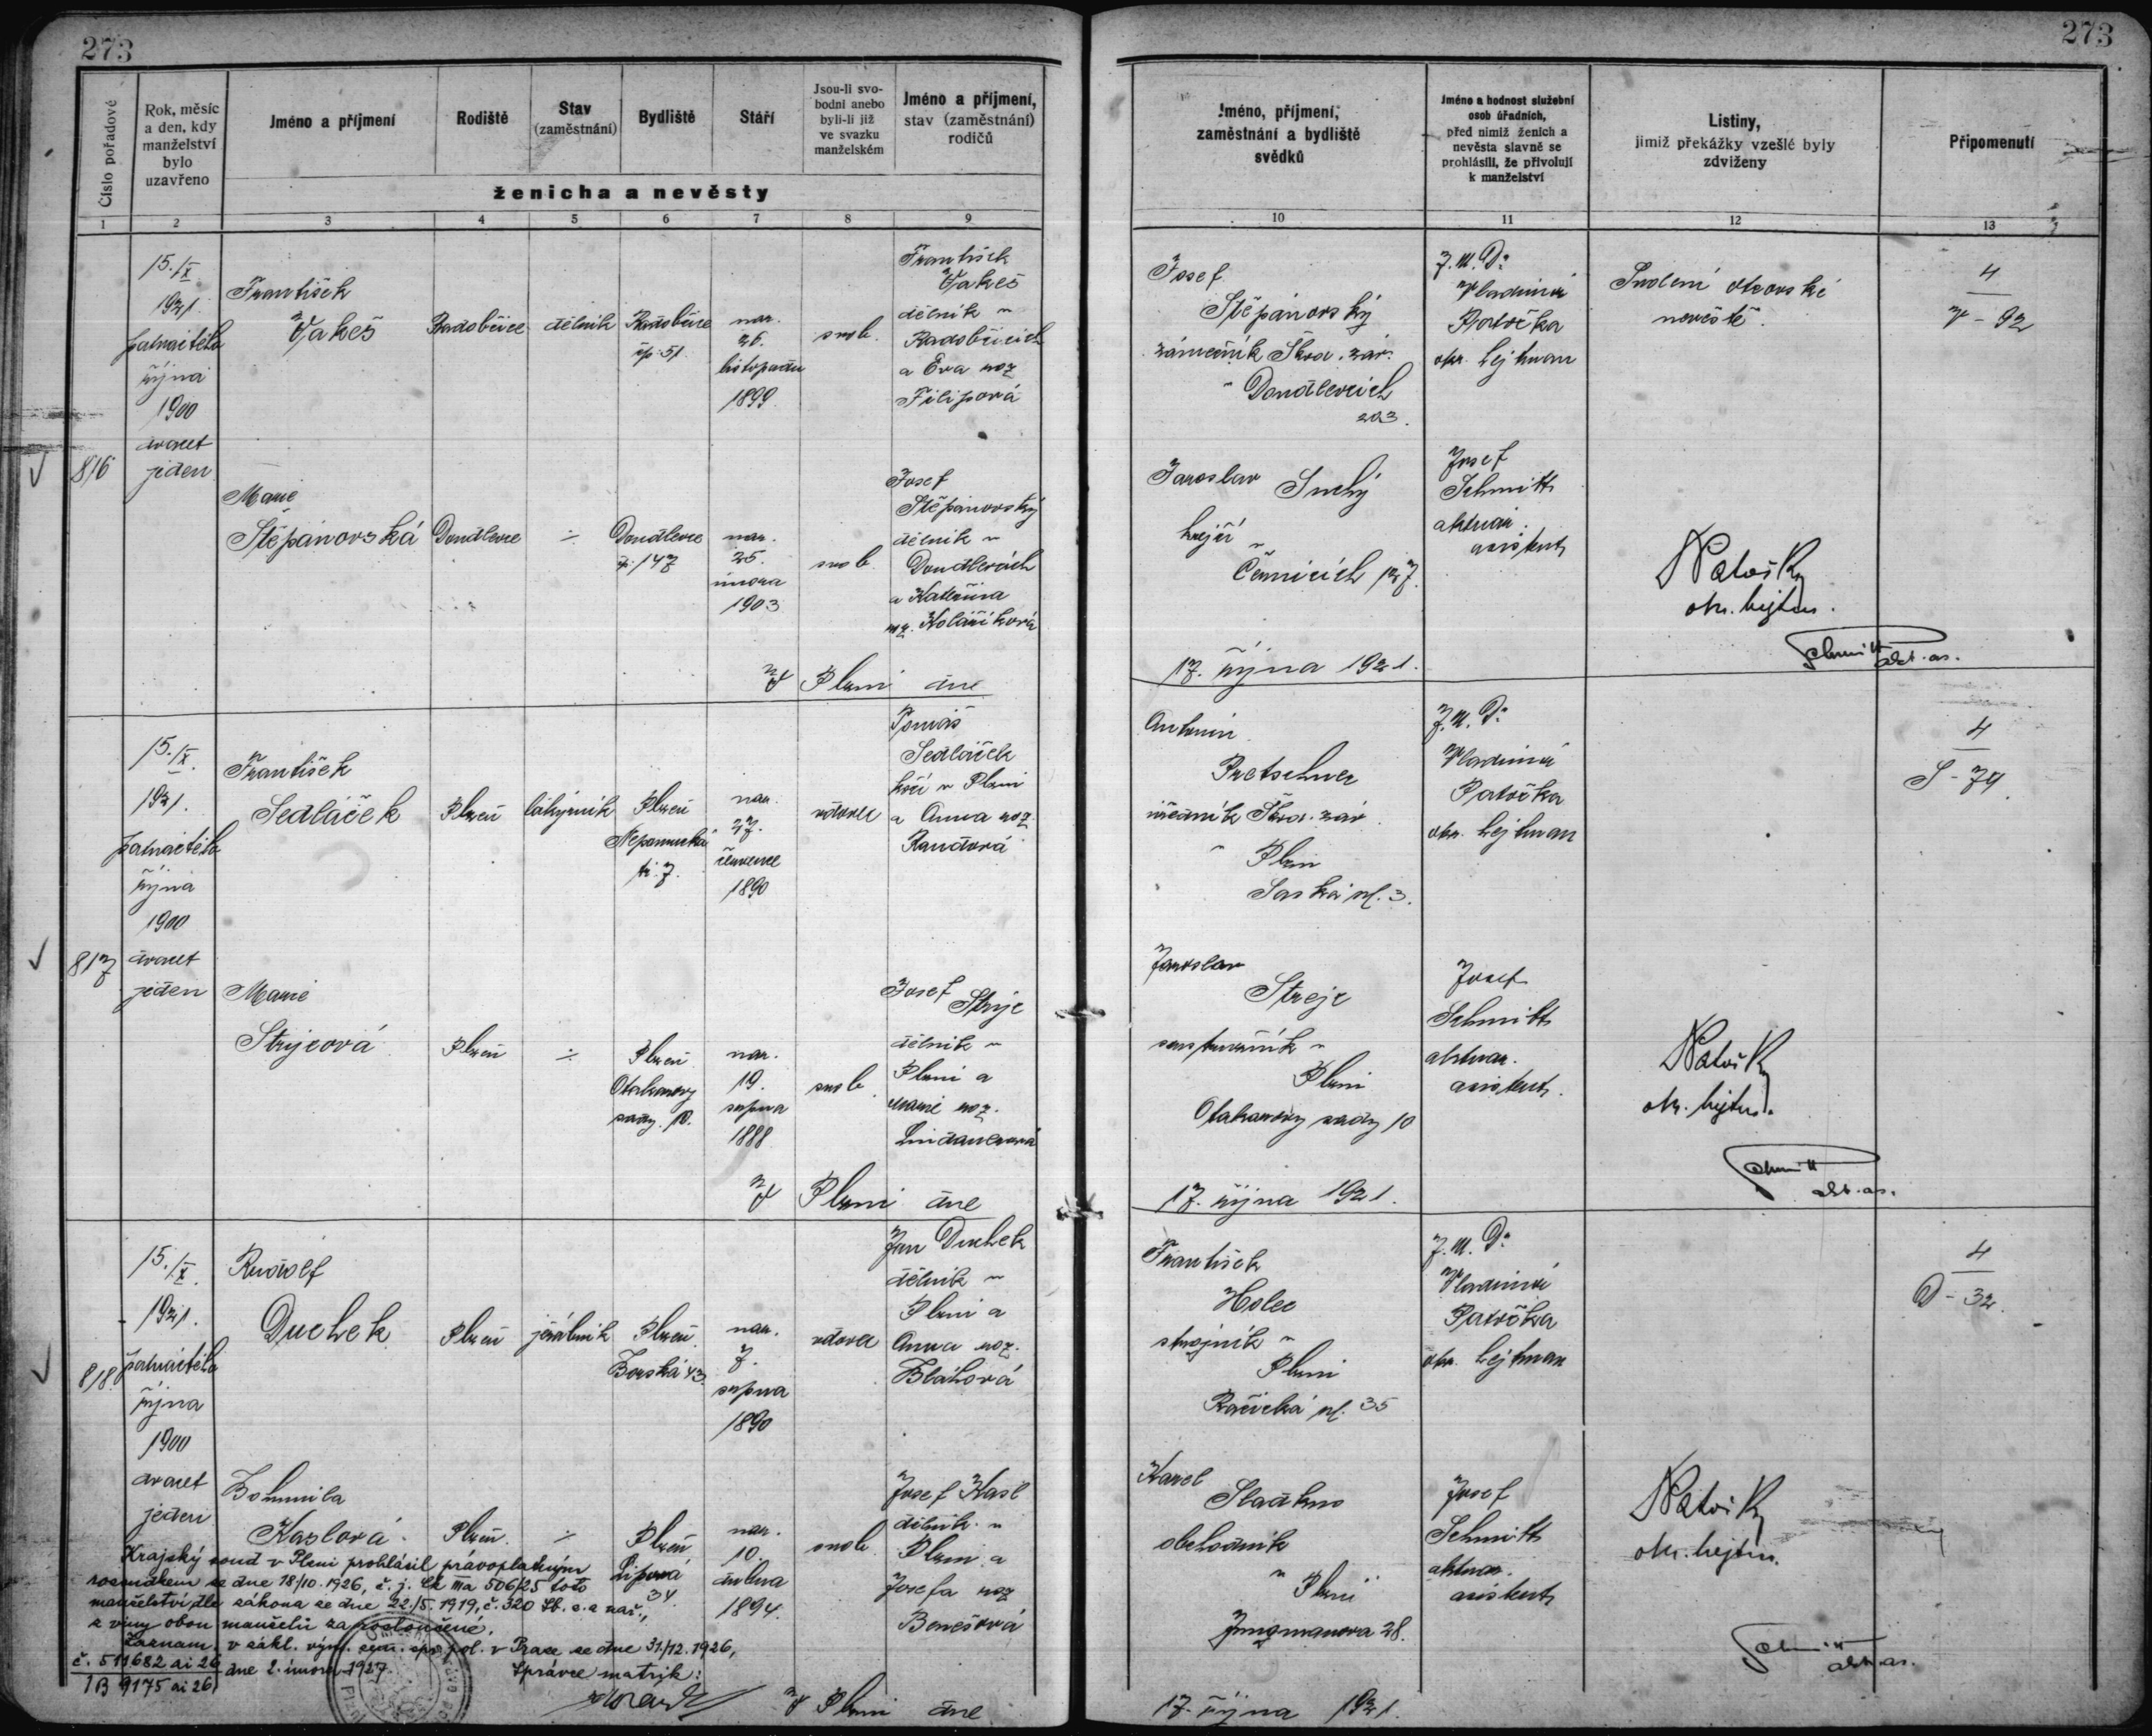 273
273
Číslo pořadové
Rok, měsíc
a den, kdy
manželství
bylo
uzavřeno
Jméno a příjmení
Rodiště
Stav
(zaměstnání)
Bydliště
Stáří
Jsou-li svo-
bodni anebo
byli-li již
ve svazku
manželském
Jméno a příjmení,
stav (zaměstnání)
rodičů
ženicha a nevěsty
Jméno, příjmení,
zaměstnání a bydliště
svědků
Jméno a hodnost služební
osob úřadních,
před nimiž ženich a
nevěsta slavně se
prohlásili, že přivolují
k manželství
Listiny,
jimiž překážky vzešlé byly
zdviženy
Připomenutí
1
2
3
4
5
6
7
8
9
10
11
12
13
816
15./X.
1921.
patnáctého
října
1900
dvacet
jeden
František
Vakeš
Radobčice
dělník
Radobčice
čp. 51.
nar.
26.
listopadu
1899
svob.
František
Vakeš
dělník v
Radobčicích
a Eva roz.
Filipová
Marie
Štěpánovská
Doudlevce
÷
Doudlevce
čp. 147
nar.
25.
února
1903
svob.
Josef
Štěpánovský
dělník v
Doudlevcích
a Kateřina
roz. Kolaříková
V Plzni dne
Josef
Štěpánovský
zámečník Škod. záv.
v Doudlevcích
203.
Jaroslav Suchý
krejčí v
Černicích 127.
J. U. Dr
Vladimír
Patočka
okr. hejtman
Josef
Schmitt
aktuár.
asistent
Svolení otcovské
nevěstě.
4
V - 92
Patočka
okr. hejtm.
Schmitt
akt. as.
17. října 1921.
817
15./X.
1921.
patnáctého
října
1900
dvacet
jeden
František
Sedláček
Plzeň
Plzeň
Nepomucká
tř. 7.
nar.
27.
července
1890
vdovec
Tomáš
Sedláček
kočí v Plzni
a Anna roz.
Randová
Marie
Strejcová
Plzeň
÷
Plzeň
Otakarovy
sady. 10.
nar.
19.
srpna
1888
svob.
Josef Strejc
dělník v
Plzni a
Marie roz.
V Plzni dne
Antonín
Pretschner
úředník Škod. záv.
v Plzni
Saská ul. 3.
Jaroslav
Strejc
v
Plzni
Otakarovy sady 10
J. U. Dr
Vladimír
Patočka
okr. hejtman
Josef
Schmitt
aktuár.
asistent.
4
S - 79
Patočka
okr. hejtm.
Schmitt
akt. as.
17. října 1921.
818.
15./X.
1921.
patnáctého
října
1900
dvacet
jeden
Rudolf
Duchek
Plzeň
jeřábník
Plzeň
Borská 43.
nar.
7.
srpna
1890
vdovec
Jan Duchek
dělník v
Plzni a
Anna roz.
Bláhová
Bohumila
Kaslová
Plzeň
÷
Plzeň
Lipová
34.
nar.
10.
dubna
1894.
svob.
Josef Kasl
dělník v
Plzni a
Josefa roz
Benešová
František
Holec
strojník v
Plzni
Karel
obchodník
v Plzni
Jungmanova 28.
J. U. Dr
Vladimír
Patočka
okr. hejtman
Josef
Schmitt
aktuár.
asistent
4
D - 32.
Patočka
okr. hejtm.
Schmitt
akt. as.
Krajský soud v Plzni prohlásil právoplatným
rozsudkem ze dne 18/10. 1926, č. j. Ck IIIa 506/25 toto
manželství dle zákona ze dne 22./5. 1919, č. 320 Sb. z. a nař.,
z viny obou manželů za rozloučené.
Záznam. v zákl. výn. zem. spr. pol. v Praze ze dne 31./12. 1926,
č. 511682 ai 26 dne 2. února 1927.
1B 9175 ai 26.
Správce matrik:
V Plzni dne
17. října 1921.